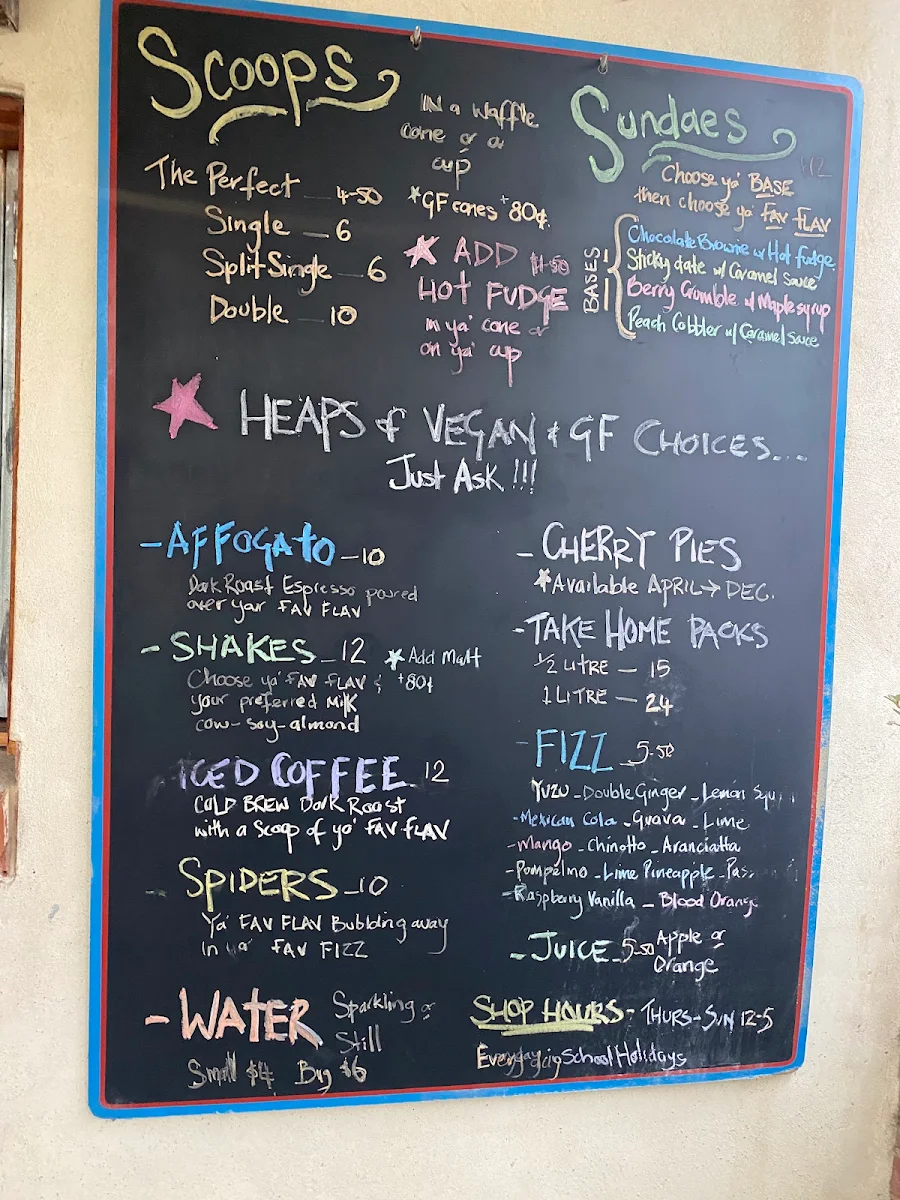 Scoops
The Perfect 4-50
Single 6
Split Single 6
Double 10
IN a Waffle
cone or a
cup
*GF cones +80¢
ADD
HOT FUDGE
in ya' cone or
on ya' cup
Sundaes
Choose ya' BASE
then choose ya' FAV FLAV
BASES
Chocolate Brownie w Hot fudge
Sticky date w/ Caramel sauce
Berry Crumble w/ Maple syrup
Peach Cobbler w/ Caramel sauce
HEAPS of VEGAN & GF CHOICES...
Just Ask !!!
- AFFOGATO - 10
Dark Roast Espresso poured
over your FAV FLAV
- SHAKES - 12
*Add Malt
+80¢
Choose ya' FAV FLAV &
your preferred Milk
cow - soy - almond
ICED COFFEE 12
COLD BREW Dark Roast
with a Scoop of yo' FAV FLAV
- SPIDERS - 10
Ya' FAV FLAV Bubbling away
in ya' FAV FIZZ
- WATER Sparkling or
Still
Small $4 Big $6
- CHERRY PIES
*Available APRIL → DEC.
- TAKE HOME PACKS
1/2 LITRE — 15
1 LITRE — 24
- FIZZ 5-50
Yuzu - Double Ginger - Lemon
- Mexican Cola - Guava - Lime
- Mango - Chinotto - Aranciatta
- Pompelmo - Lime Pineapple
- Raspberry Vanilla - Blood Orange
- JUICE - 5-50 Apple or
Orange
SHOP HOURS - THURS-SUN 12-5
Everyday in School Holidays